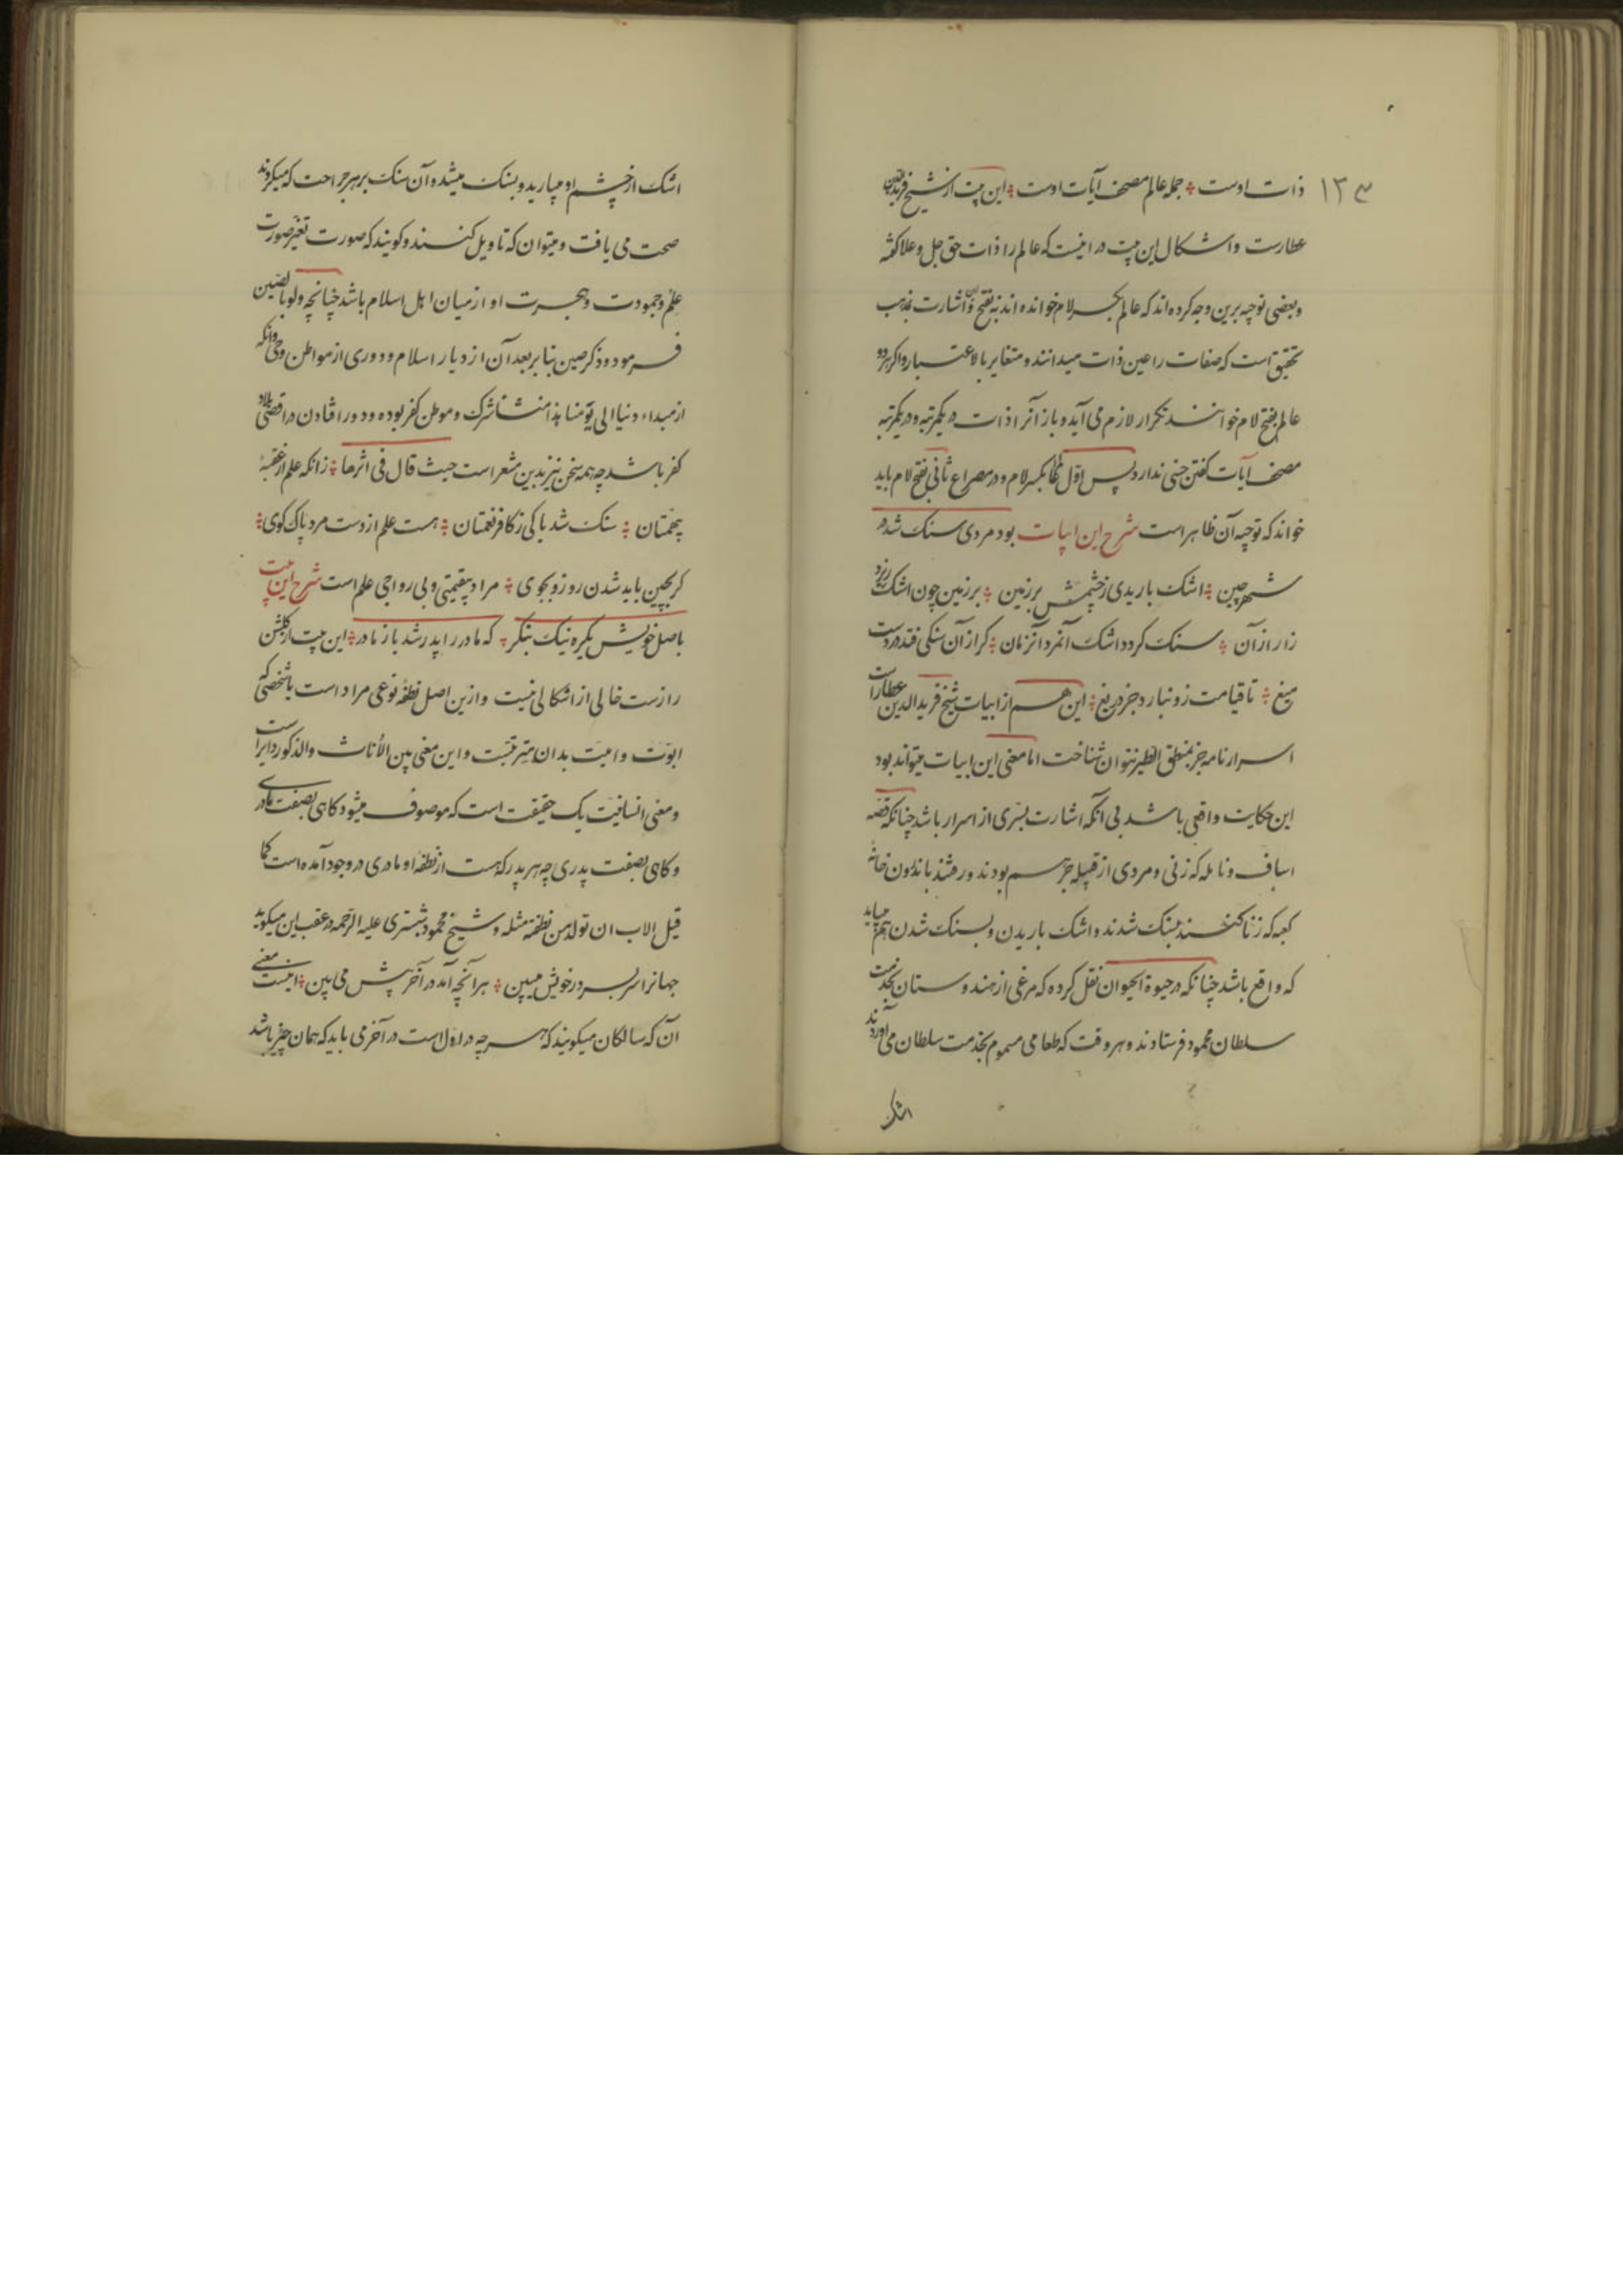 ۱۳۴
ذات اوست ÷ جمله عالم مصحف آیات اوست ÷ این بیت از شیخ فریدالدین
عطارست واشکال این بیت در اینست که عالم را ذات حق جل وعلا گفته
وبعضی توجیه برین وجه کرده اند که عالم بکسر لام خوانده اند نه بفتح واین اشارت بمذهب
تحقیق است که صفات را عین ذات میدانند ومتغایر بالاعتبار واکر هردو
عالم بفتح لام خوانند تکرار لازم می آید وباز آنرا ذات در یکمرتبه ودر یکمرتبه
مصحف آیات کفتن حسنی ندارد پس اول بکسر لام ودر مصراع ثانی بفتح لام باید
خواند که توجیه آن ظاهر است شرح این ابیات بود مردی سنک شد در
شهر چین ÷ اشک باریدی ز چشمش بر زمین ÷ بر زمین چون اشک ریزد
زار از آن ÷ سنک کردد اشک آنمرد آنزمان ÷ کر از آن سنکی فتد در دست
میغ ÷ تا قیامت زو نبارد جز دریغ ÷ این هم از ابیات شیخ فرید الدین عطار است
اسرارنامه جز بمنطق الطیر نتوان شناخت اما معنی این ابیات میتواند بود
این حکایت واقعی باشد بی آنکه اشارت بسّری از اسرار باشد چنانکه قصّه
اساف ونایله که زنی ومردی از قبیله جرهم بودند ورفتند باندرون خانه
کعبه که زنا کنند سنک شدند واشک باریدن وبسنک شدن هم میباید
که واقع باشد چنانکه در حیوة الحیوان نقل کرده که مرغی از هندوستان بخدمت
سلطان محمود فرستادند وهر وقت که طعامی مسموم بخدمت سلطان می آوردند
اشک
اشک از چشم او میبارید وبسنک میشد وآن سنک بر هر جراحت که میکردند
صحت می یافت ومیتوان که تاویل کنند وکویند که صورت تغیر صورت
علم وجمودت وهجرت او از میان اهل اسلام باشد چنانچه ولو بالصین
فرمود وذکر صین بنا بر بعد آن از دیار اسلام ودوری از مواطن وحی وآنکه
از مبداء دنیا الی یومنا هذا منشأ شرک وموطن کفر بوده ودور افتادن در اقصی بلاد
کفر باشد چه همه سخن نیز بدین مشعر است حیث قال فی اثرها ÷ زانکه علم از غصهٔ
بیهمتان ÷ سنک شد تا کی ز کافر نعمتان ÷ هست علم از دست مرد پاک کوی ÷
کر بچین باید شدن رو زو بجوی ÷ مراد بیقیمتی وبی رواجی علم است شرح این بیت
باصل خویش یکره نیک بنکر ÷ که مادر را پدر شد باز مادر ÷ این بیت از کلشن
رازست خالی از اشکالی نیست وازین اصل نطفهٔ نوعی مراد است یا شخصی که
ابوّت وامیّت بدان مترتبست واین معنی بین الاُناث والذکور دایر است
ومعنی انسانیّت یک حقیقت است که موصوف میشود کاهی بصفت مادری
وکاهی بصفت پدری چه هر پدر که هست از نطفه او مادری در وجود آمده است کما
قیل الاب ان تولد من نطفته مثله وشیخ محمود شبستری علیه الرّحمه در عقب این میکوید
جهانرا سر بسر در خویش میبین ÷ هر آنچه آمد در آخر پیش می بین ÷ اینست معنی
آن که سالکان میکویند که هر چه در اول است در آخر می باید که همان چیز باشد